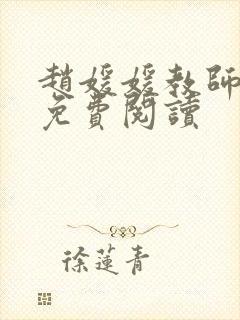 趙媛媛教師
免費閱讀
徐蓮青